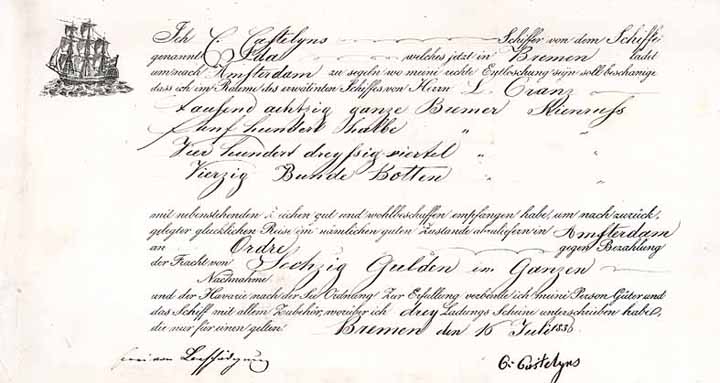 Ich C Castelyns Schiffer von dem Schiffe
genannt Ida welches jetzt in Bremen ladet
um nach Amsterdam zu segeln wo meine rechte Entlöschung seijn soll bescheinige
dass ich im Raüme des erwähnten Schiffes von Herrn L. Cranz
tausend achtzig ganze Bremer Kienruss
fünf hundert halbe " "
Vier hundert dreyssig viertel " "
Vierzig Bunde Botten " "
mit nebenstehenden Zeichen gut und wohlbeschaffen empfangen habe, um nach zurück,
gelegter glücklichen Reise im nämlichen guten Zustande abzuliefern in Amsterdam
an Ordre gegen Bezahlung
der Fracht von Sechzig Gulden im Ganzen
Nachnahme
und der Havarie nach der See Ordnung Zur Erfüllung verbinde ich meine Person Güter und
das Schiff mit allem Zubehör, worüber ich drey Ladungs Scheine unterschrieben habe,
die nur für einen gelten Bremen den 16 Juli 183
frei von Beschädigung C. Castelyns